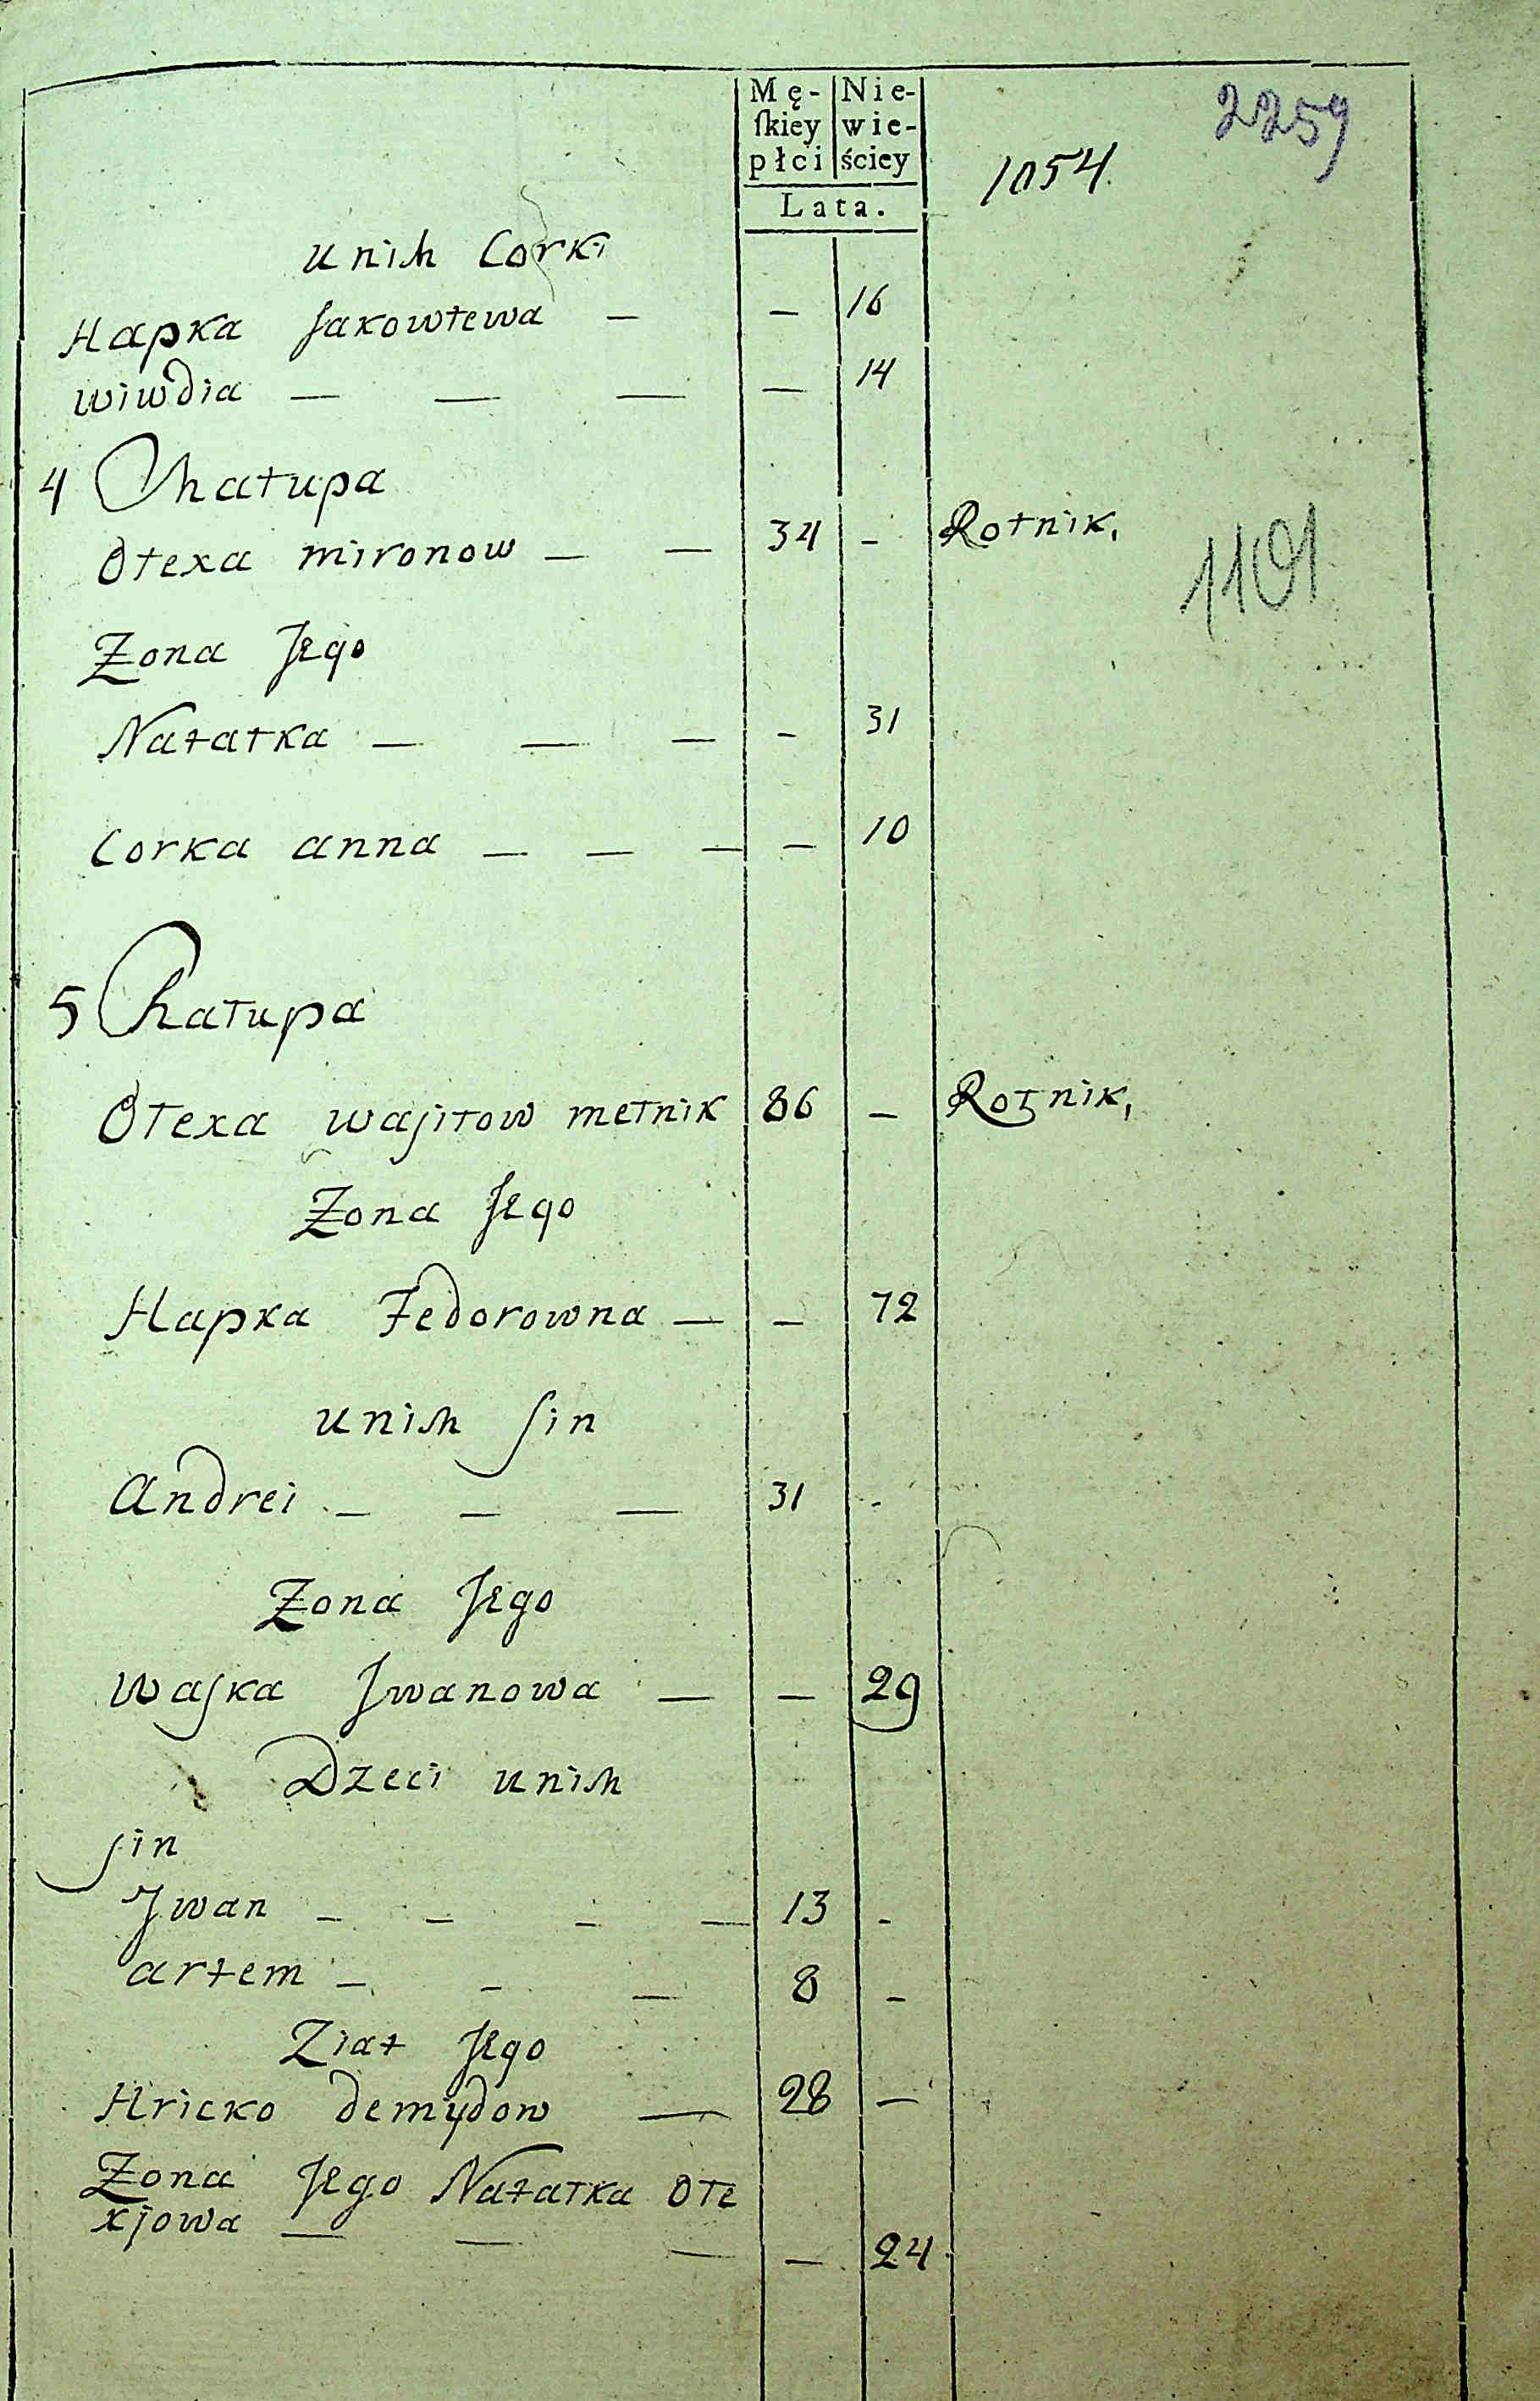 Mę- Nie-
ſkiey wie-
płci ściey
Lata.
2259
1054
unih Corki
Hapka Jakowłewa — — 16
wiwdia — — — — 14
4 Chałupa
Ołexa mironow — — 34 - Rolnik,
1101
Żona Jego
Nałałka — — — - 31
Corka anna — — — — 10
5 Chałupa
Ołexa wajiłow mełnik 86 — Rolnik,
Żona Jego
Hapka Fedorowna — — 72
unih ſin
Andrei — — — 31 -
Żona Jego
Waſka Jwanowa — — 29
Dzeci unih
ſin
Jwan — — — — 13 -
artem — — — 8 -
Ziat Jego
Hricko demydow — 28 —
Żona Jego Nałałka Ołe
xjowa — — — — 24